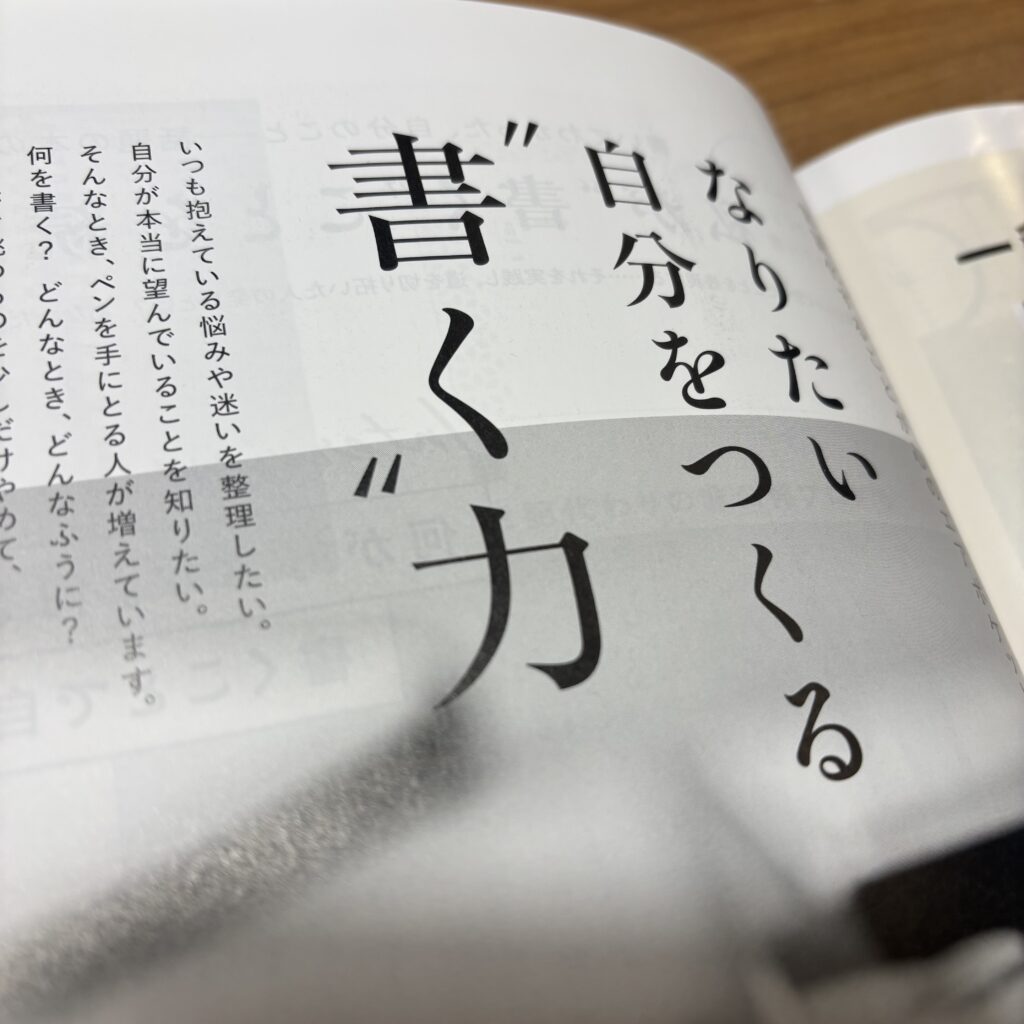 なりたい
自分をつくる
“書く”力
いつも抱えている悩みや迷いを整理したい。
自分が本当に望んでいることを知りたい。
そんなとき、ペンを手にとる人が増えています。
何を書く? どんなとき、どんなふうに?
だけやめて、